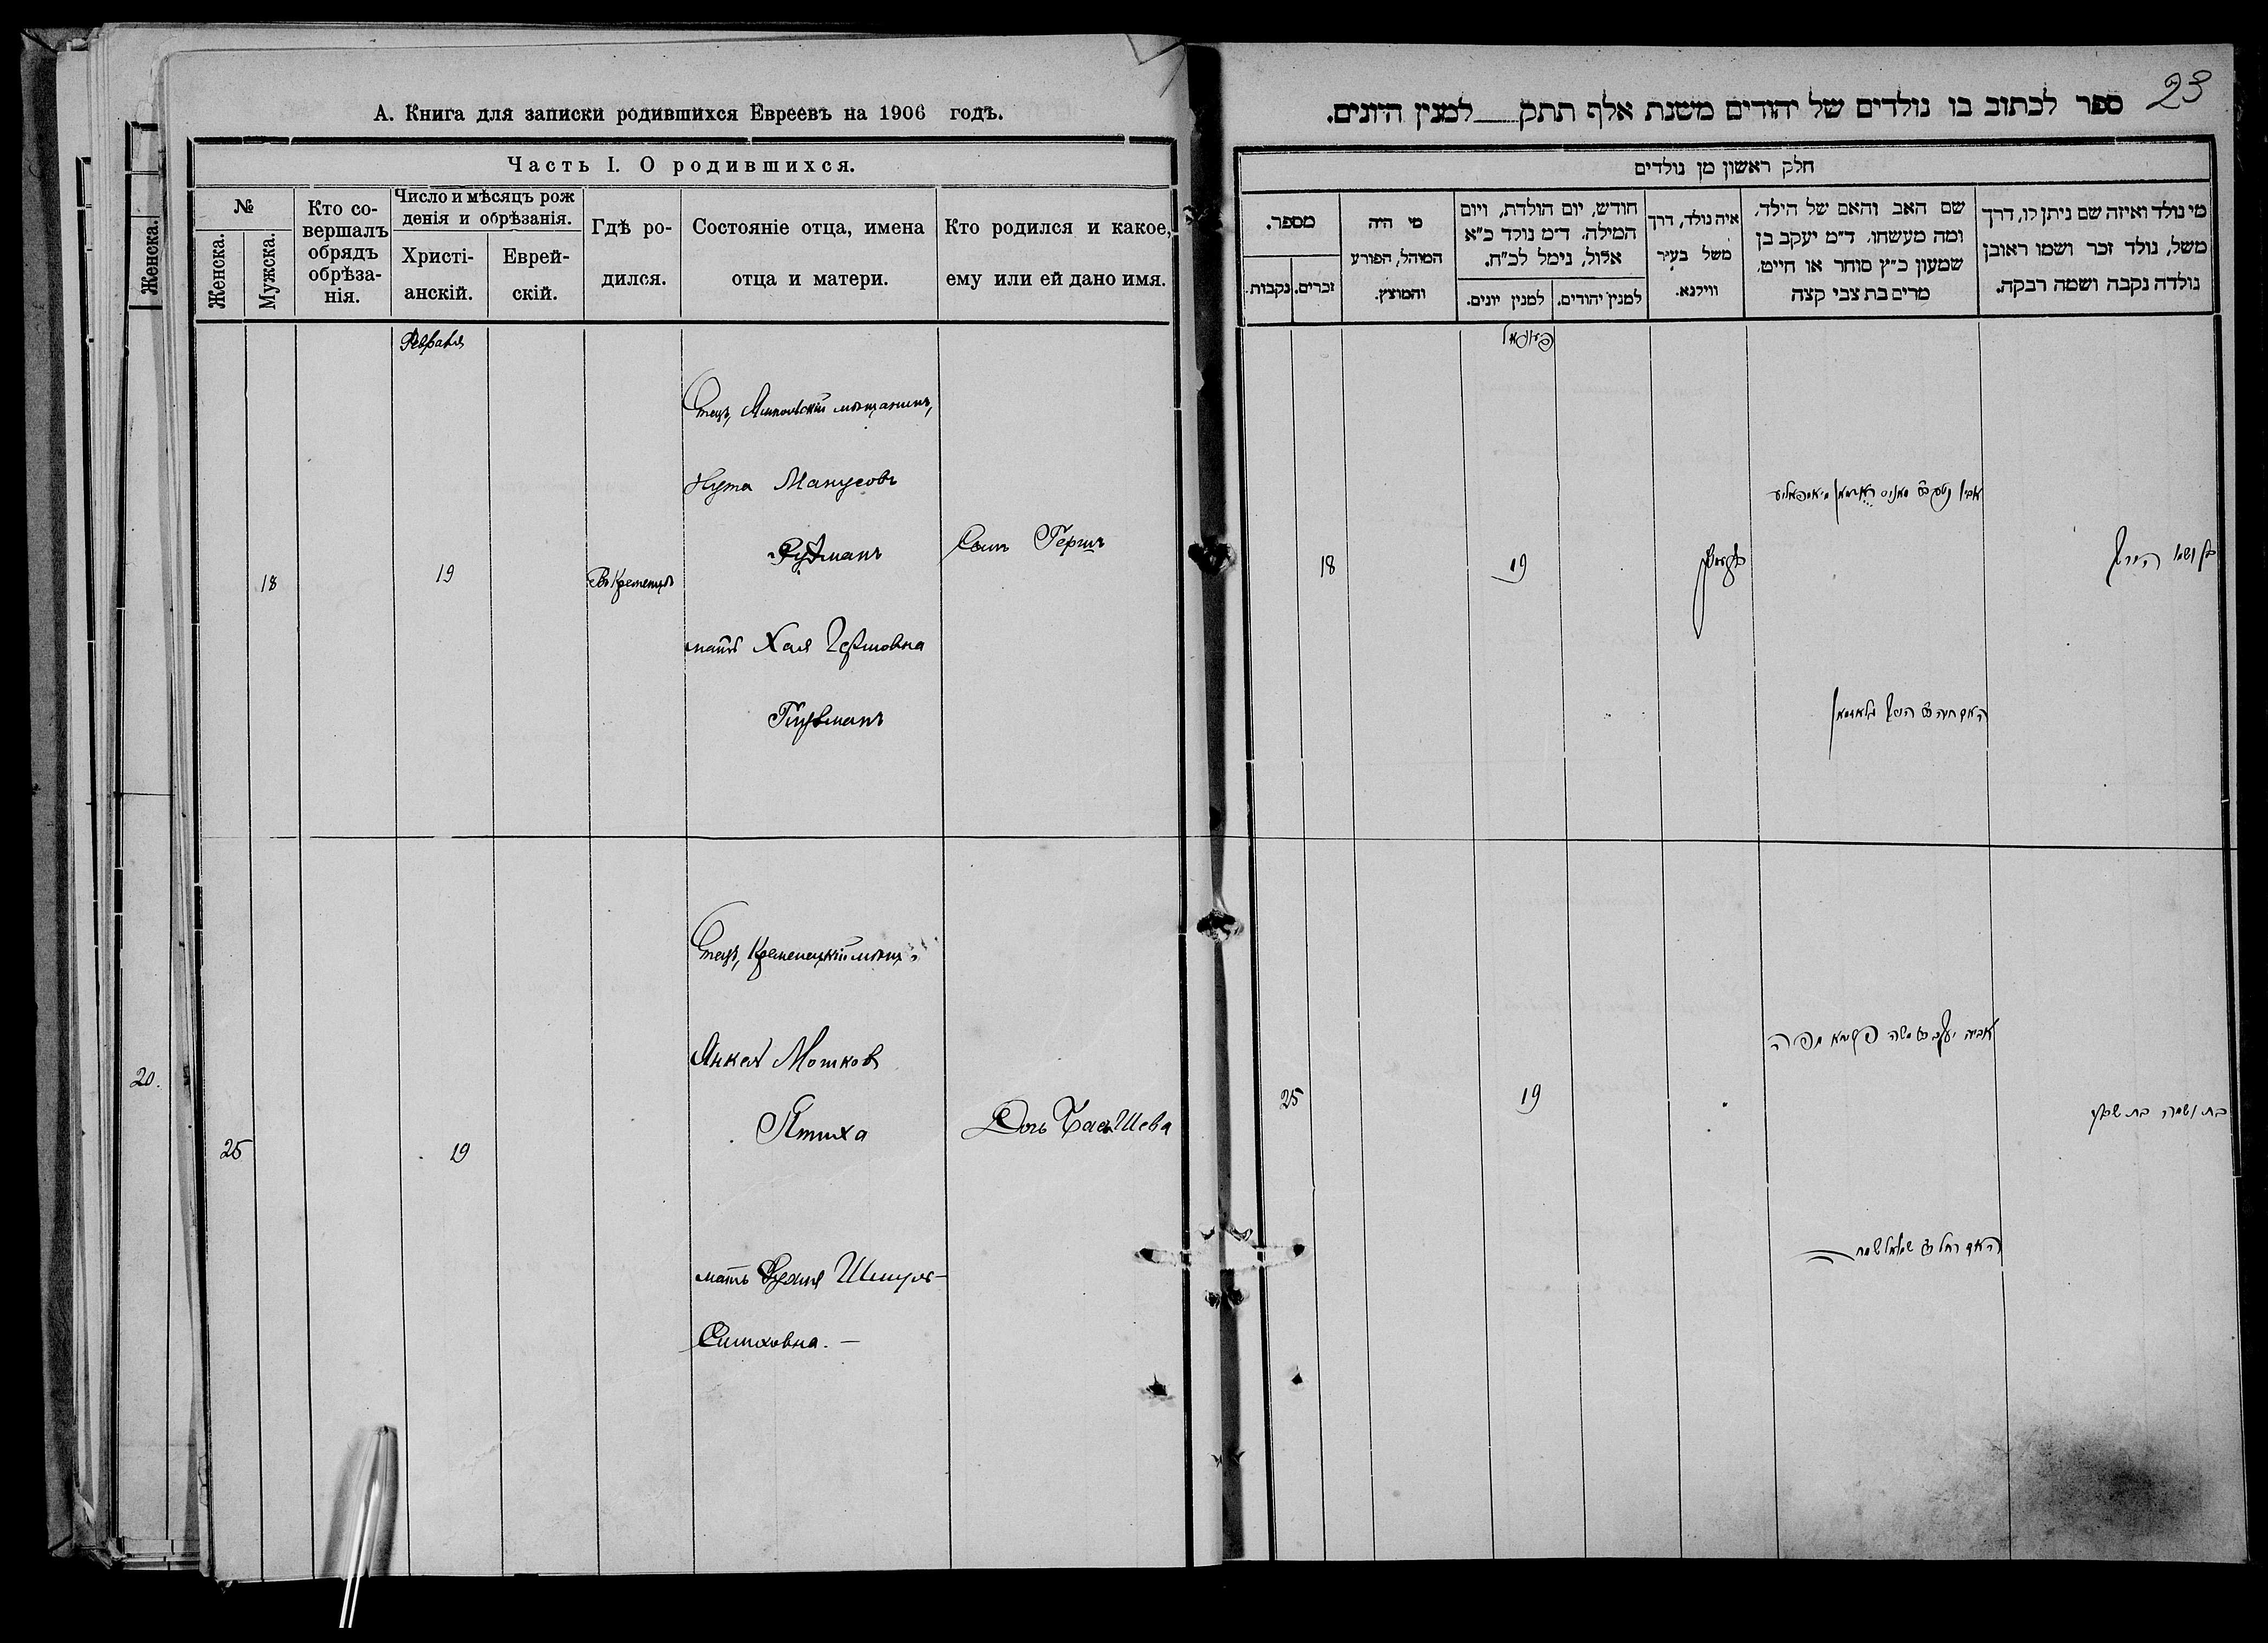 А. Книга для записки родившихся Евреевъ на 1906 годъ.
Часть I. О родившихся.
№
Женска.
Мужска.
Кто со-
вершалъ
обрядъ
обрѣза-
нія.
Число и мѣсяцъ рож
денія и обрѣзанія.
Христі-
анскій.
Еврей-
скій.
Гдѣ ро-
дился.
Состояніе отца, имена
отца и матери.
Кто родился и какое,
ему или ей дано имя.
Женска.
20.
Февраля
18
19
Въ Кременцѣ
Отецъ, Ямпольскій мѣщанинъ,
Нута Манусовъ
матъ Хая
Сынъ Гершъ
25
19
Отецъ, Кременецкій мѣщ.
Янкель Мошковъ
Птиха
мать Шмуль-
Симховна. —
Дочь Бася Шева
23
ספר לכתוב בו נולדים של יהודים משנת אלף תתק למנין היונים.
חלק ראשון מן נולדים
מספר.
נקבות.
זכרים.
מי היה
המוהל, הפורע
והמוצץ.
חודש, יום הולדת, ויום
המילה. ד״מ נולד כ״א
אלול, נימל לכ״ח.
למנין יונים.
למנין יהודים.
איה נולד, דרך
משל בעיר
ווילנא.
שם האב והאם של הילד,
ומה מעשהו. ד״מ יעקב בן
שמעון כ״ץ סוחר או חייט,
מרים בת צבי קצה
מי נולד ואיזה שם ניתן לו, דרך
משל, נולד זכר ושמו ראובן
נולדה נקבה ושמה רבקה.
18
19
בן ושמו הירש
25
19
בת ושמה בת שבע